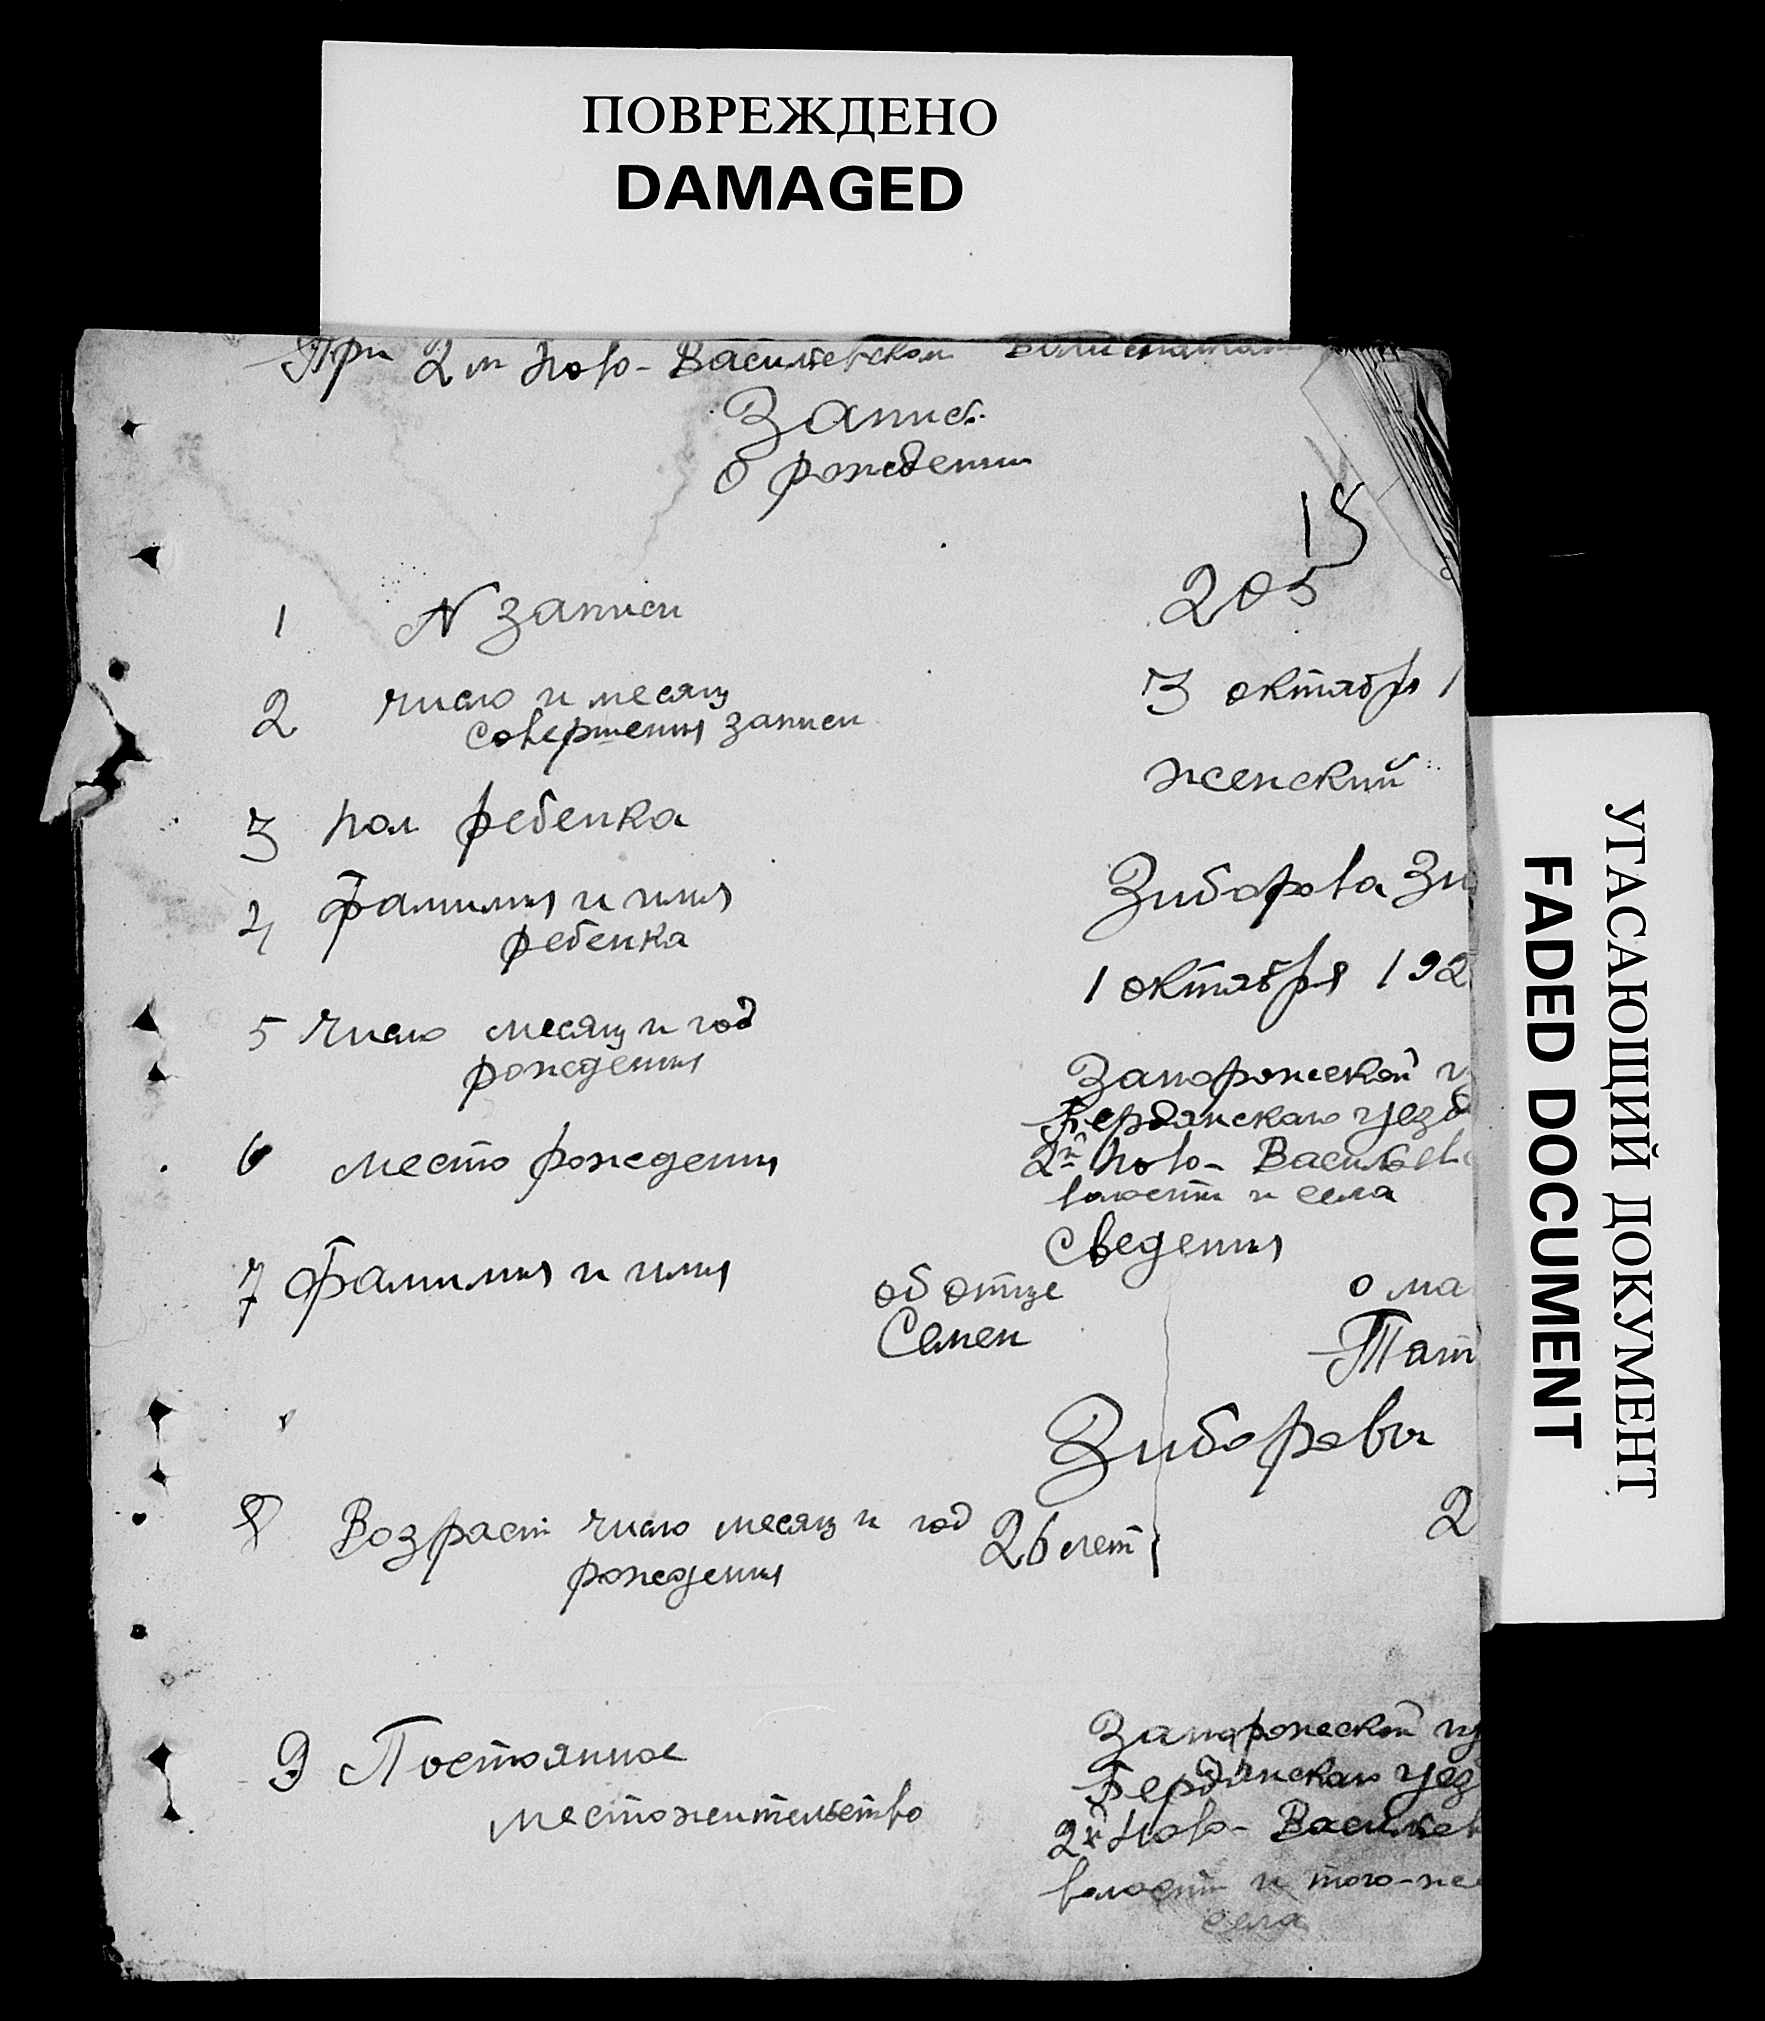 ПОВРЕЖДЕНО
DAMAGED
При 2м Ново-Васильевском
Запись
о рождении
15
1 N записи 205
2 число и месяц совершения записи 3 октября 1
3 пол ребенка женский
4 фамилия и имя ребенка Зиборова Зи
5 число месяц и год рождения 1 октября 192
6 место рождения Запорожской гу
Бердянскаго уезд
2й Ново-Васильев
волости и села
Сведения
7 Фамилия и имя об отце о ма
Семен Тат
Зиборовы
8 Возраст число месяц и год рождения 26 лет 2
9 Постоянное местожительство Запорожской гу
Бердянскаго уез
2й Ново-Васильев
волости и того-же
села
УГАСАЮЩИЙ ДОКУМЕНТ
FADED DOCUMENT